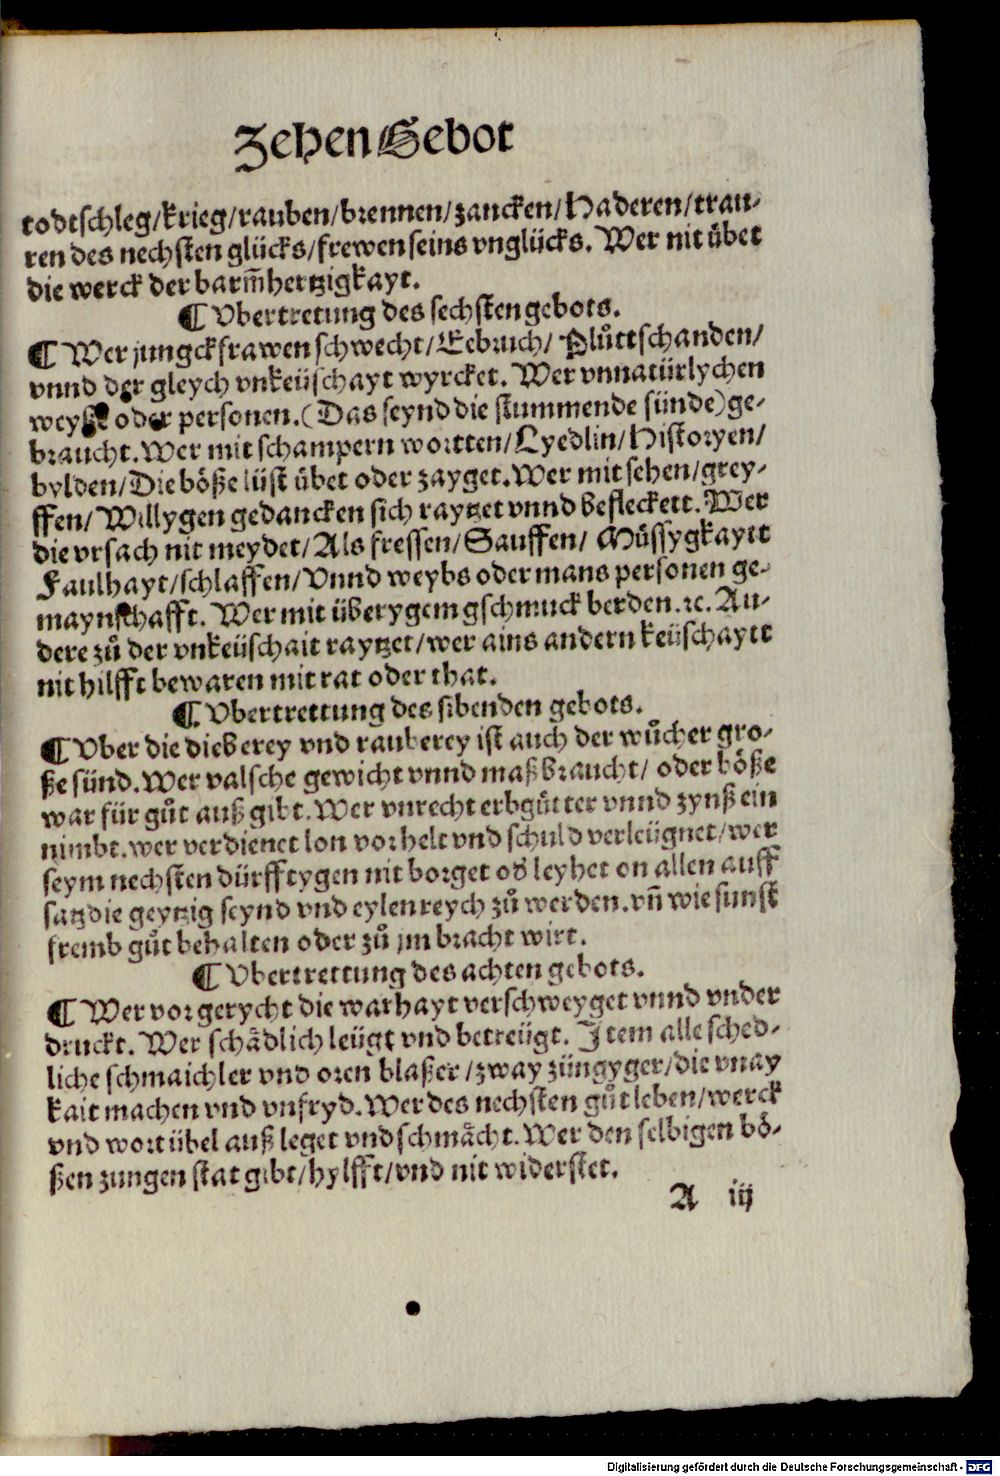 Zehen Gebot
todtschleg/krieg/rauben/brennen/zancken/Haderen/trau-
ren des nechsten glücks/frewen seins vnglücks. Wer nit übet
die werck der barm̃hertzigkayt.
¶ Vbertretung des sechsten gebots.
¶ Wer jungckfrawen schwecht/Eebruch/ Plůttschanden/
vnnd der gleych vnkeüschayt wyrcket. Wer vnnatürlychen
weyße oder personen. (Das seynd die stummende sünde) ge-
braucht. Wer mit schampern wortten/Lyedlin/Historyen/
bylden/Die böße lüst übet oder zayget. Wer mit sehen/grey-
ffen/Willygen gedancken sich raytzet vnnd befleckett. Wer
die vrsach nit meydet/Als fressen/Sauffen/ Müssygkaytt
Faulhayt/schlaffen/Vnnd weybs oder mans personen ge-
maynschafft. Wer mit überygem gschmuck berden.ꝛc. An-
dere zů der vnkeüschait raytzet/wer ains andern keüschaytt
nit hilfft bewaren mit rat oder that.
¶ Vbertrettung des sibenden gebots.
¶ Vber die dieberey vnd rauberey ist auch der wůcher gro-
ße sünd. Wer valsche gewicht vnnd maß braucht/ oder böße
war für gůt auß gibt. Wer vnrecht erbgütter vnnd zynß ein
nimbt. wer verdienet lon vor helt vnd schuld verleügnet/wer
seym nechsten dürfftygen nit borget od' leyhet on allen auff
satz die geytzig seynd vnd eylen reych zů werden. vñ wie sunst
fremb gůt behalten oder zů jm bracht wirt.
¶ Vbertrettung des achten gebots.
¶ Wer vor gerycht die warhayt verschweyget vnnd vnder
druckt. Wer schådlich leügt vnd betreügt. Item alle sched-
liche schmaichler vnd oren blaßer/zway züngyger/die vnay
kait machen vnd vnfryd. Wer des nechsten gůt leben/werck
vnd wort übel auß leget vnd schmåcht. Wer den selbigen bö-
ßen zungen stat gibt/hylfft/vnd nit widerstet.
A iij
Digitalisierung gefördert durch die Deutsche Forschungsgemeinschaft - DFG